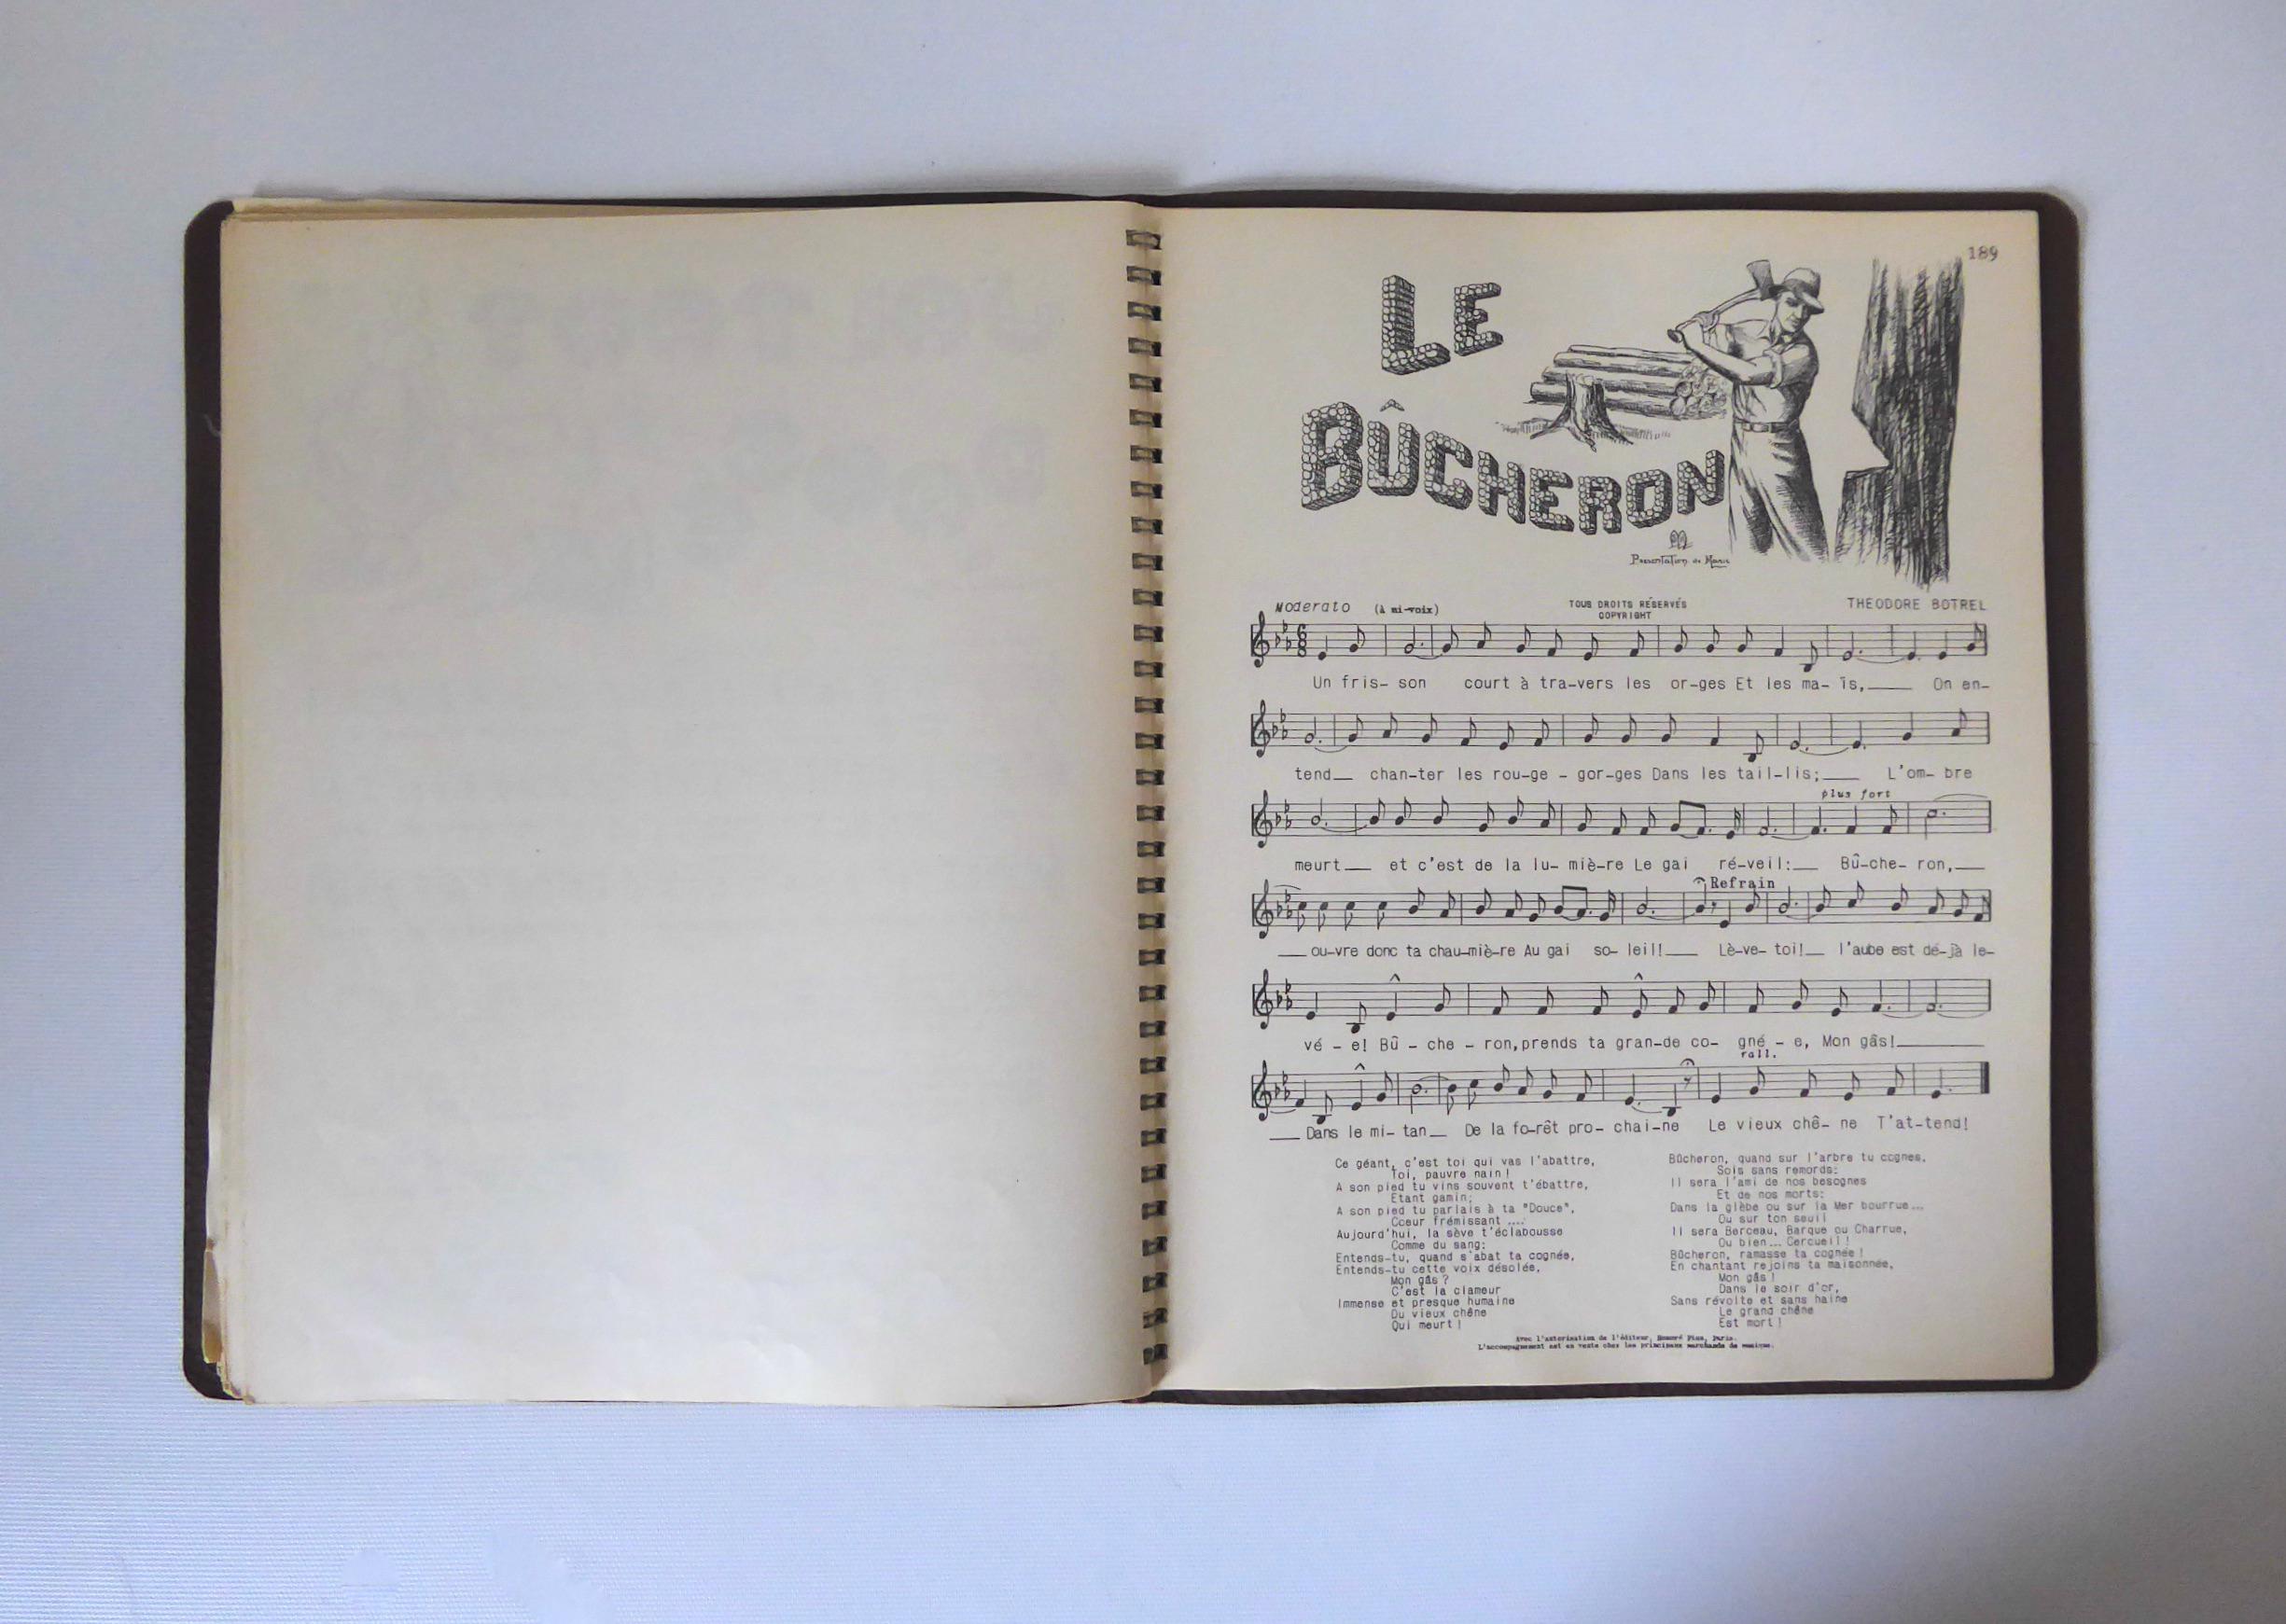 189
LE
BÛCHERON
Presentation de
Moderato (à mi-voix) TOUS DROITS RÉSERVÉS THEODORE BOTREL
COPYRIGHT
Un fris- son court à tra-vers les or-ges Et les ma- ïs,___ On en-
tend__ chan-ter les rou-ge - gor-ges Dans les tail-lis;___ L'om- bre
plus fort
meurt__ et c'est de la lu- miè-re Le gai ré-veil:__ Bû-che- ron,__
Refrain
__ ou-vre donc ta chau-miè-re Au gai so- leil!__ Lè-ve- toi!__ l'aube est dé-jà le-
vé - e! Bû - che - ron, prends ta gran-de co- gné - e, Mon gâs!______
rall.
__ Dans le mi- tan__ De la fo-rêt pro- chai-ne Le vieux chê- ne T'at-tend!
Ce géant, c'est toi qui vas l'abattre,
Toi, pauvre nain!
A son pied tu vins souvent t'ébattre,
Etant gamin;
A son pied tu parlais à ta "Douce",
Coeur frémissant ....
Aujourd'hui, la sève t'éclabousse
Comme du sang;
Entends-tu, quand s'abat ta cognée,
Entends-tu cette voix désolée,
Mon gâs?
C'est la clameur
Immense et presque humaine
Du vieux chêne
Qui meurt!
Bûcheron, quand sur l'arbre tu cognes,
Sois sans remords:
Il sera l'ami de nos besognes
Et de nos morts:
Dans la glèbe ou sur la Mer bourrue...
Ou sur ton seuil
Il sera Berceau, Barque ou Charrue,
Ou bien... Cercueil!
Bûcheron, ramasse ta cognée!
En chantant rejoins ta maisonnée,
Mon gâs!
Dans le soir d'or,
Sans révolte et sans haine
Le grand chêne
Est mort!
Avec l'autorisation de l'éditeur, Paris.
L'accompagnement est en vente chez les principaux marchands de musique.